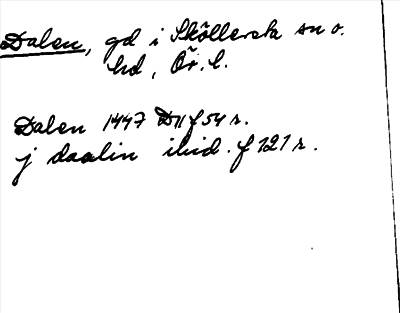 Dalen, gd i Sköllersta sn o.
hd, Ör. l.
Dalen 1447 D11 f 54 r.
j daalin ibid. f 121 r.